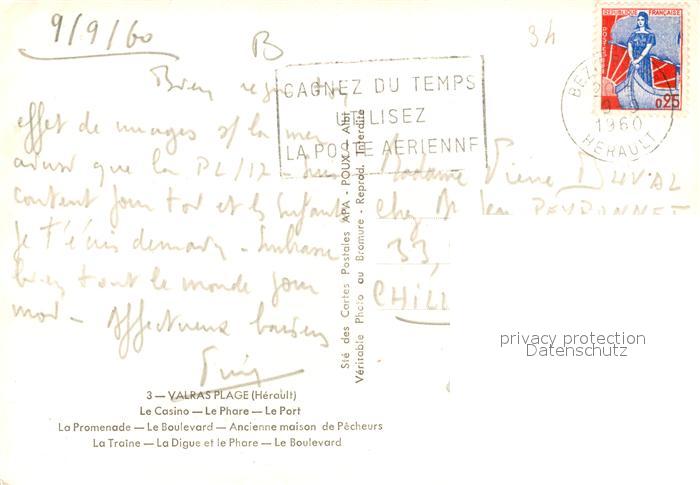 9/9/60
B
3h
RÉPUBLIQUE FRANÇAISE
POSTES
0,25
BEZ
1960
HERAULT
GAGNEZ DU TEMPS
UTILISEZ
LA POSTE AERIENNE
Bien
effet de nuages s/ la mer
ainsi que la
content pour toi et les enfants
Je t'écris demain - Embrasse
bien tout le monde pour
moi - Affectueux baisers
Madame Pierre DUVAL
chez
PEYRONNET
33,
CHILL
Sté des Cartes Postales APA - POUX - Albi
Véritable Photo au Bromure - Reprod. Interdite
privacy protection
Datenschutz
3 — VALRAS PLAGE (Hérault)
Le Casino — Le Phare — Le Port
La Promenade — Le Boulevard — Ancienne maison de Pêcheurs
La Traîne — La Digue et le Phare — Le Boulevard